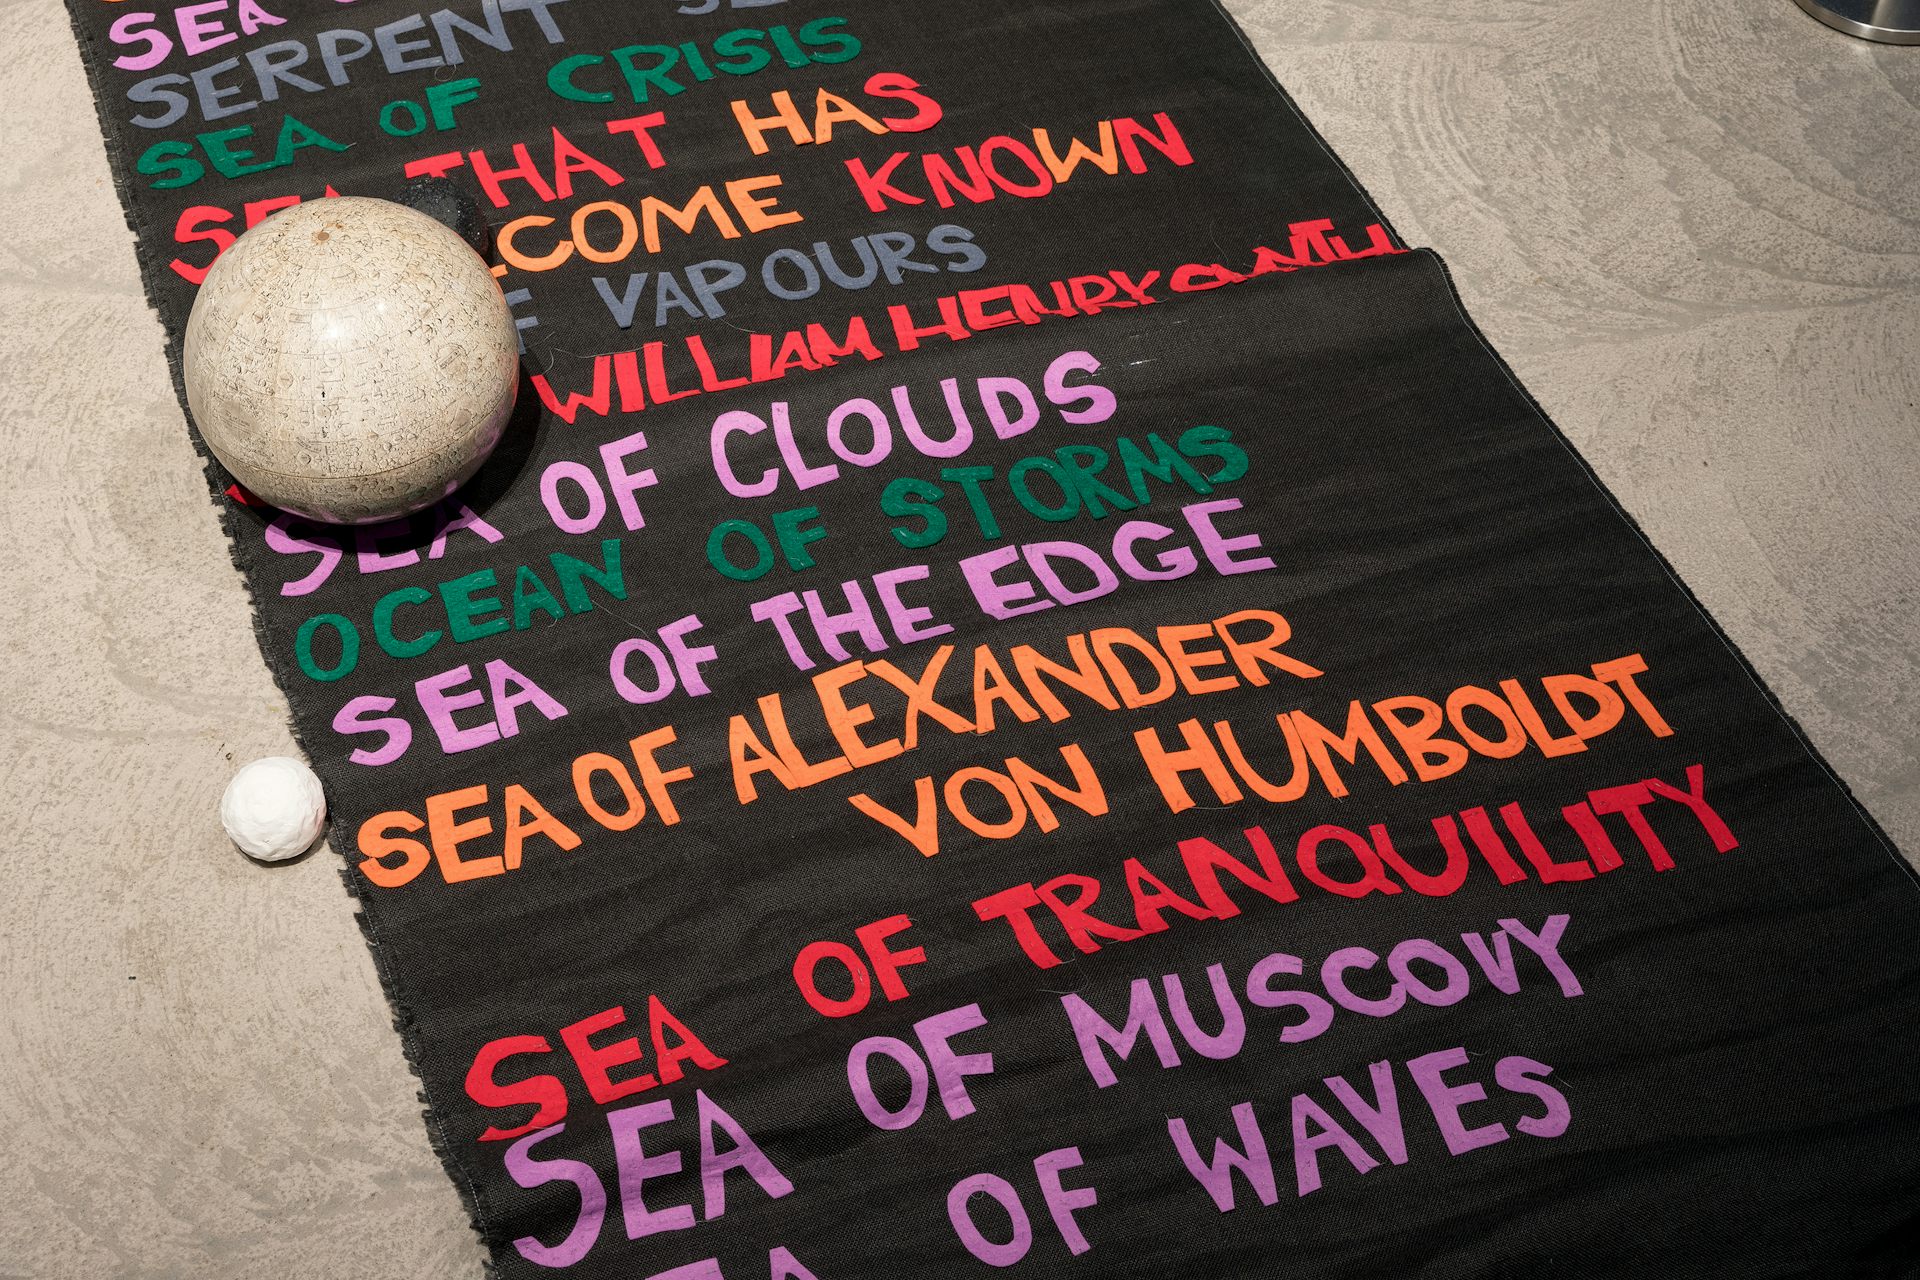 SEA
SERPENT SE
SEA OF CRISIS
SEA THAT HAS
COME KNOWN
F VAPOURS
WILLIAM HENRY SMYTH
SEA OF CLOUDS
OCEAN OF STORMS
SEA OF THE EDGE
SEA OF ALEXANDER
VON HUMBOLDT
SEA OF TRANQUILITY
SEA OF MUSCOVY
SEA OF WAVES